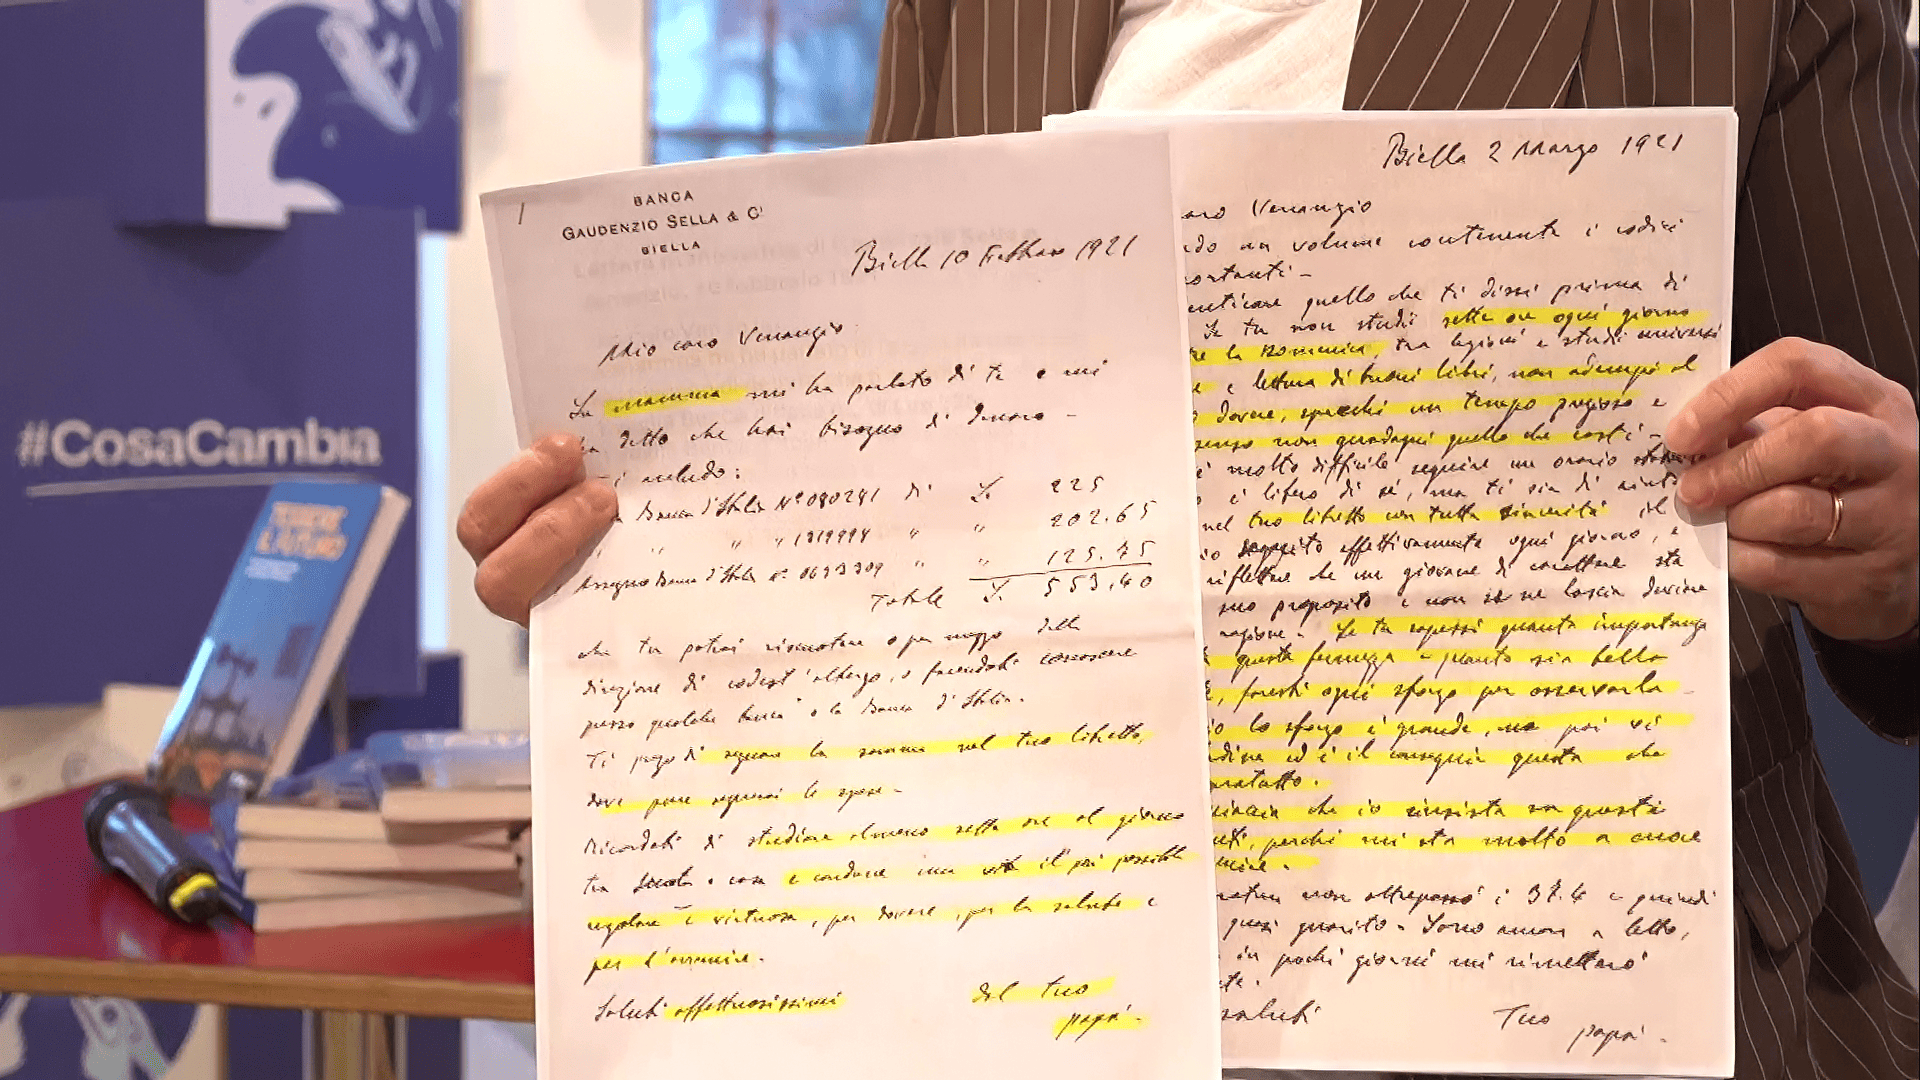 #CosaCambia
TENERE
IL FUTURO
BANCA
GAUDENZIO SELLA & Cⁱ
BIELLA
Biella 10 Febbraio 1921
Mio caro Venanzio
La mamma mi ha parlato di te e mi
ha detto che hai bisogno di denaro -
includo:
Banca d'Italia Nº 080281 di L. 225
" " " 1319994 " " 202.65
Assegno Banca d'Italia nº 0693309 " " 125.75
Totale L. 553.40
che tu potrai riscuotere o per mezzo della
direzione di codest'albergo, o facendoti conoscere
presso qualche banca o la Banca d'Italia.
Ti prego di segnare la somma nel tuo libretto,
dove pure segnerai le spese -
Ricordati di studiare almeno sette ore al giorno
tra scuola e casa e condurre una vita il più possibile
regolare e virtuosa, per dovere, per la salute e
per l'avvenire.
Saluti affettuosissimi
dal tuo
papà -
Biella 2 Marzo 1921
caro Venanzio
un volume contenente i codici
importanti -
dimenticare quello che ti dissi prima di
Se tu non studi sette ore ogni giorno
la Domenica, tra lezioni e studi universi
e lettura di buoni libri, non adempi al
dovere, sprechi un tempo prezioso e
senso non guadagni quello che costi -
è molto difficile seguire un orario
è libero di sé, ma ti sia di aiuto
nel tuo libretto con tutta sincerità il
seguito effettivamente ogni giorno, e
riflettere che un giovane di carattere sta
suo proposito e non se ne lascia deviare
ragione. Se tu sapessi quanta importanza
questa fermezza e quanto sia bella
faresti ogni sforzo per osservarla -
lo sforzo è grande, ma poi vi
ed è il conseguir questa che
che io insista su questi
perché mi sta molto a cuore
non oltrepassò i 37.4 e quindi
quasi guarito - Sono ancora a letto,
in pochi giorni mi rimetterò
saluti
Tuo
papà -